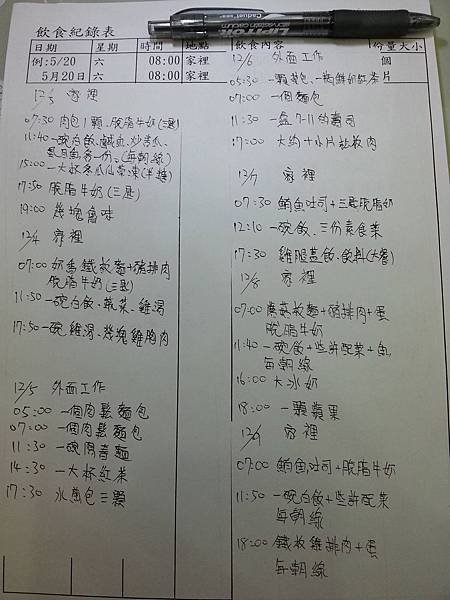 飲食紀錄表
日期 星期 時間 地點 飲食內容 份量大小
例:5/20 六 08:00 家裡 個
5月20日 六 08:00 家裡 片
12/3 家裡
07:30 肉包1顆、脫脂牛奶(三匙)
11:40 一碗白飯、鹹血、炒苦瓜、
虱目魚各一份。(每朝綠)
15:00 一大杯冬瓜仙草凍(半糖)
17:50 脫脂牛奶(三匙)
19:00 幾塊魯味
12/4 家裡
07:00 奶焗鐵板麵+豬排肉
脫脂牛奶(三匙)
11:50 一碗白飯、蔬菜、雞湯
17:50 一碗雞湯、幾塊雞胸肉
12/5 外面工作
05:00 一個肉鬆麵包
07:00 一個肉鬆麵包
11:30 一碗陽春麵
14:30 一大杯紅茶
17:30 水煎包三顆
12/6 外面工作
05:30 一顆菜包、一瓶鮮奶紅茶
07:00 一個麵包
11:30 一盒7-11的壽司
17:00 大約十小片鯊魚肉
12/7 家裡
07:30 鮪魚吐司+三匙脫脂奶
12:10 一碗飯、三份素食菜
17:30 雞腿蓋飯、飲料(大餐)
12/8 家裡
07:00 蘑菇板麵+豬排肉+蛋
脫脂牛奶
11:40 一碗飯+些許配菜+魚
每朝綠
16:00 大冰奶
18:00 一顆蘋果
12/9 家裡
07:00 鮪魚吐司+脫脂牛奶
11:50 一碗白飯+些許配菜
每朝綠
18:00 鐵板雞排肉+蛋
每朝綠